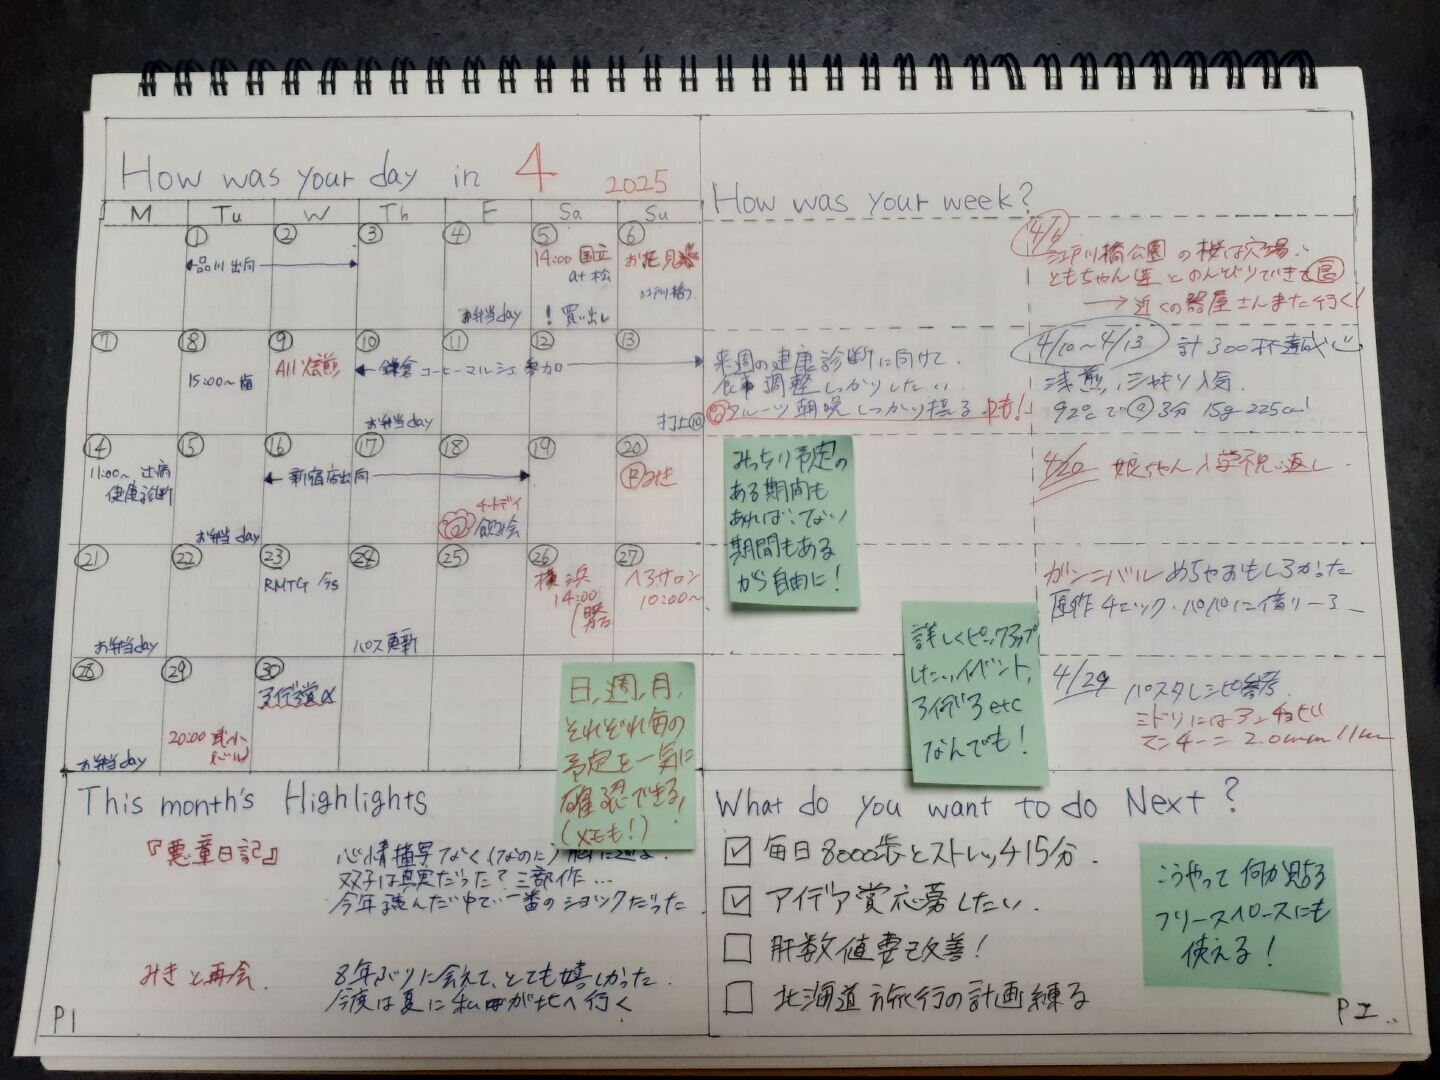 How was your day in 4 2025
M Tu W Th F Sa Su
① ② ③ ④ ⑤ ⑥
品川出向
14:00 国立
at 松
お花見
江戸川橋
お弁当day
! 買い出し
⑦ ⑧ ⑨ ⑩ ⑪ ⑫ ⑬
15:00〜 歯
All 焙煎
鎌倉コーヒーマルシェ参加
お弁当day
打上
⑭ ⑮ ⑯ ⑰ ⑱ ⑲ ⑳
11:00〜 辻病
健康診断
新宿店出向
みき
チートデイ
飲み会
お弁当day
㉑ ㉒ ㉓ ㉔ ㉕ ㉖ ㉗
RMTG
横浜
14:00
ヘアサロン
10:00〜
お弁当day
パス更新
㉘ ㉙ ㉚
アイデア賞〆
20:00
お弁当day
How was your week?
4/6
江戸川橋公園の桜は穴場!
ともちゃん とのんびりできた
→ 近くの 屋さんまた行く!
来週の健康診断に向けて、
食事調整しっかりしたい。
フルーツ朝晩しっかり摂る
4/10〜4/13 計300杯達成
浅煎、シャキリ人気
92℃で 3分 15g 225cc!
4/20 娘ちゃん入学祝い返し
ガンニバルめちゃおもしろかった
原作チェック・パパに借りーる
4/29 パスタレシピ参考
ミドリにはアンチョビ
2.0mm
みっちり予定の
ある期間も
あれば、てない
期間もある
から自由に!
詳しくピックアップ
したいイベント,
アイデアetc
なんでも!
日,週,月,
それぞれ毎の
予定を一気に
確認できる,
(メモも!)
This month's Highlights
『悪童日記』
心情描写なく(なのに)
双子は真実だった?三部作…
今年読んだ中で一番のショックだった
みきと再会
8年ぶりに会えて、とても嬉しかった
今度は夏に私が北へ行く
P1
What do you want to do Next?
☑ 毎日8000歩とストレッチ15分.
☑ アイデア賞応募したい.
☐ 肝数値要改善!
☐ 北海道旅行の計画練る
こうやって何か貼る
フリースペースにも
使える!